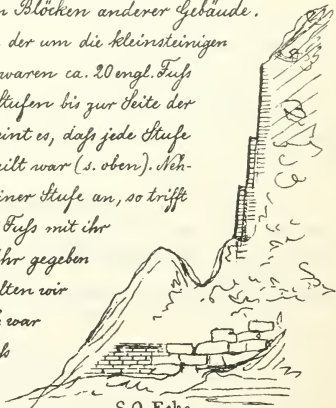 n Blöcken anderer Gebäude.
der um die kleinsteinigen
waren ca. 20 engl. Fuſs
Stufen bis zur Seite der
eint es, daſs jede Stufe
eilt war (s. oben). Neh-
einer Stufe an, so trifft
Fuſs mit ihr
ihr gegeben
lten wir
war
S.O. Ecke